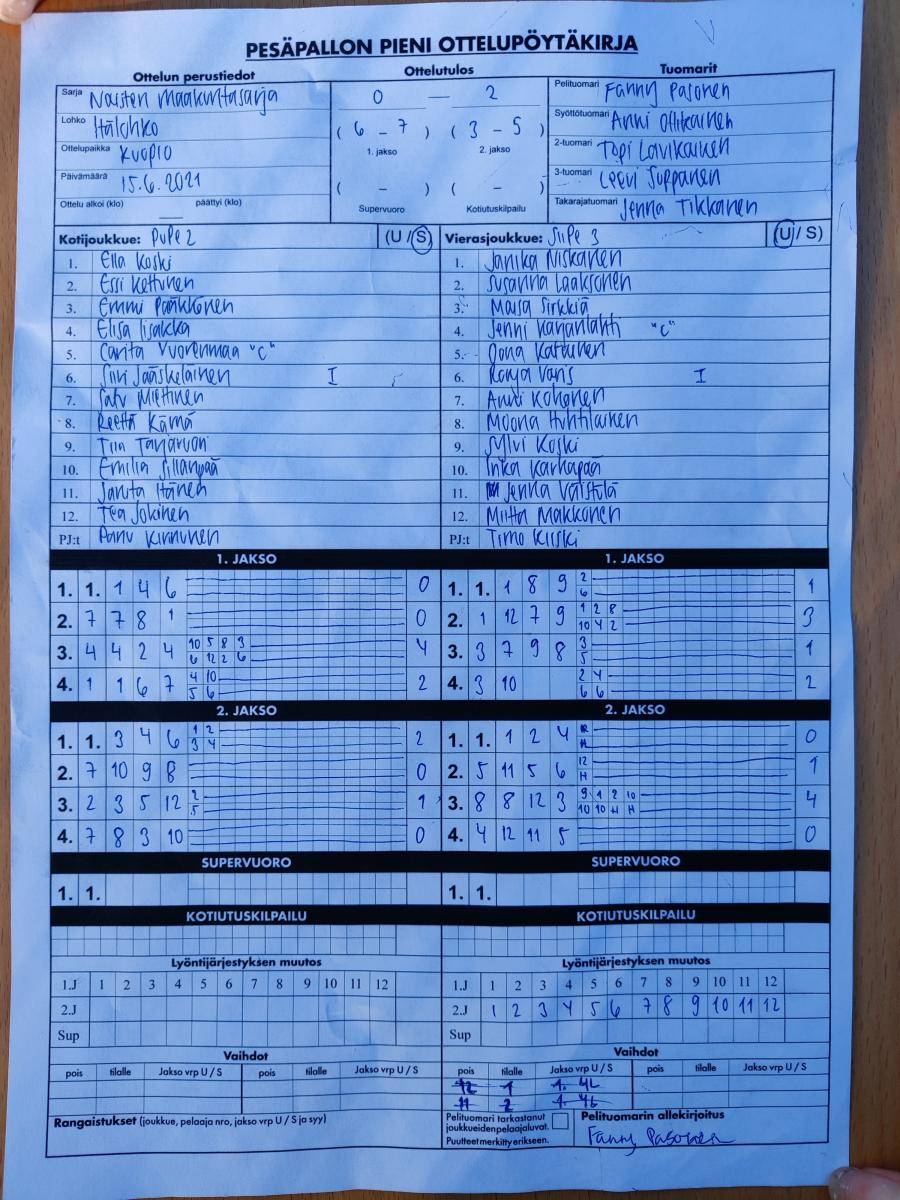 PESÄPALLON PIENI OTTELUPÖYTÄKIRJA
Ottelun perustiedot
Sarja Naisten maakuntasarja
Lohko Itälohko
Ottelupaikka Kuopio
Päivämäärä 15.6.2021
Ottelu alkoi (klo) päättyi (klo)
Ottelutulos
0 — 2
( 6 - 7 ) ( 3 - 5 )
1. jakso 2. jakso
( - ) ( - )
Supervuoro Kotiutuskilpailu
Tuomarit
Pelituomari Fanny Pasonen
Syöttötuomari Anni Ollikainen
2-tuomari Topi Lavikainen
3-tuomari Leevi Suppanen
Takarajatuomari Jenna Tikkanen
Kotijoukkue: PuPe 2 (U / S)
1. Ella Koski
2. Essi Kettunen
3. Emmi Pääkkönen
4. Elisa Iisakka
5. Carita Vuorenmaa "C"
6. Siiri Jääskeläinen I
7. Satu Miettinen
8. Reetta Kämä
9. Tiia Tarjavuori
10. Emilia Sillanpää
11. Janita Itänen
12. Tea Jokinen
PJ:t Panu Kinnunen
Vierasjoukkue: SiiPe 3 (U / S)
1. Janika Niskanen
2. Susanna Laaksonen
3. Maisa Sirkkiä
4. Jenni Karjanlahti "C"
5. Oona Kattainen
6. Ronja Vans I
7. Anni Kohonen
8. Moona Huhtilainen
9. Sylvi Koski
10. Inka Karhapää
11. Jenna Väistylä
12. Miitta Makkonen
PJ:t Timo Kiiski
1. JAKSO
1. 1. 1 4 6 0
2. 7 7 8 1 0
3. 4 4 2 4 10 5 8 3 4
6 12 2 6
4. 1 1 6 7 4 10 2
5 6
2. JAKSO
1. 1. 3 4 6 1 2 2
3 4
2. 7 10 9 8 0
3. 2 3 5 12 2 1
5
4. 7 8 3 10 0
SUPERVUORO
1. 1.
KOTIUTUSKILPAILU
Lyöntijärjestyksen muutos
1.J 1 2 3 4 5 6 7 8 9 10 11 12
2.J
Sup
Vaihdot
pois tilalle Jakso vrp U / S pois tilalle Jakso vrp U / S
Rangaistukset (joukkue, pelaaja nro, jakso vrp U / S ja syy)
1. JAKSO
1. 1. 1 8 9 2 1
6
2. 1 12 7 9 1 2 8 3
10 4 2
3. 3 7 9 8 3 1
5
4. 3 10 2 4 2
6 6
2. JAKSO
1. 1. 1 2 4 0
2. 5 11 5 6 12 1
H
3. 8 8 12 3 9 1 2 10 4
10 10 H H
4. 4 12 11 5 0
SUPERVUORO
1. 1.
KOTIUTUSKILPAILU
Lyöntijärjestyksen muutos
1.J 1 2 3 4 5 6 7 8 9 10 11 12
2.J 1 2 3 4 5 6 7 8 9 10 11 12
Sup
Vaihdot
pois tilalle Jakso vrp U / S pois tilalle Jakso vrp U / S
12 1 1. 4L
11 2 1. 4L
Pelituomari tarkastanut
joukkueiden pelaajaluvat.
Puutteet merkitty erikseen.
Pelituomarin allekirjoitus
Fanny Pasonen